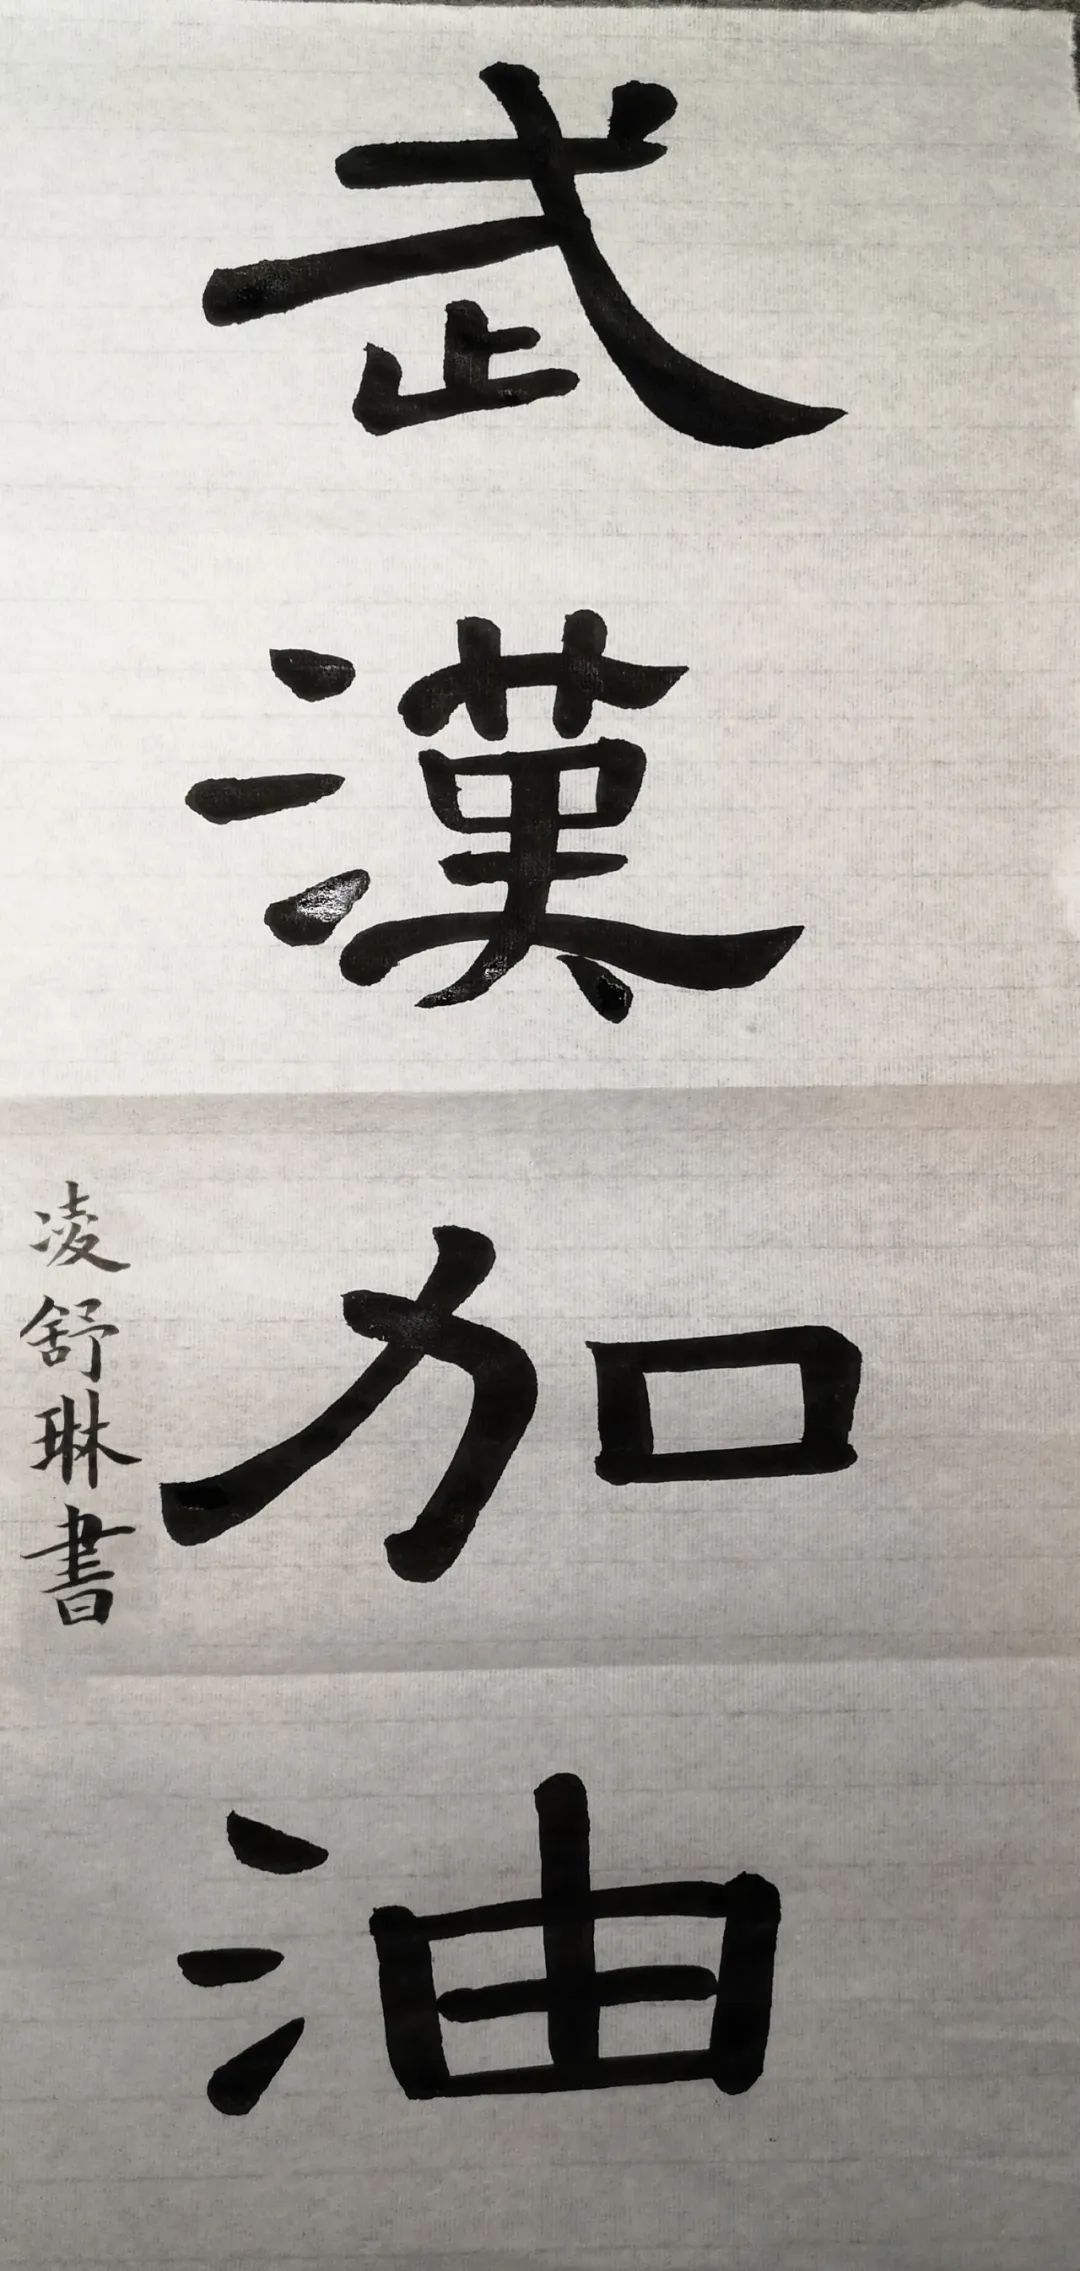 武漢加油
凌舒琳書